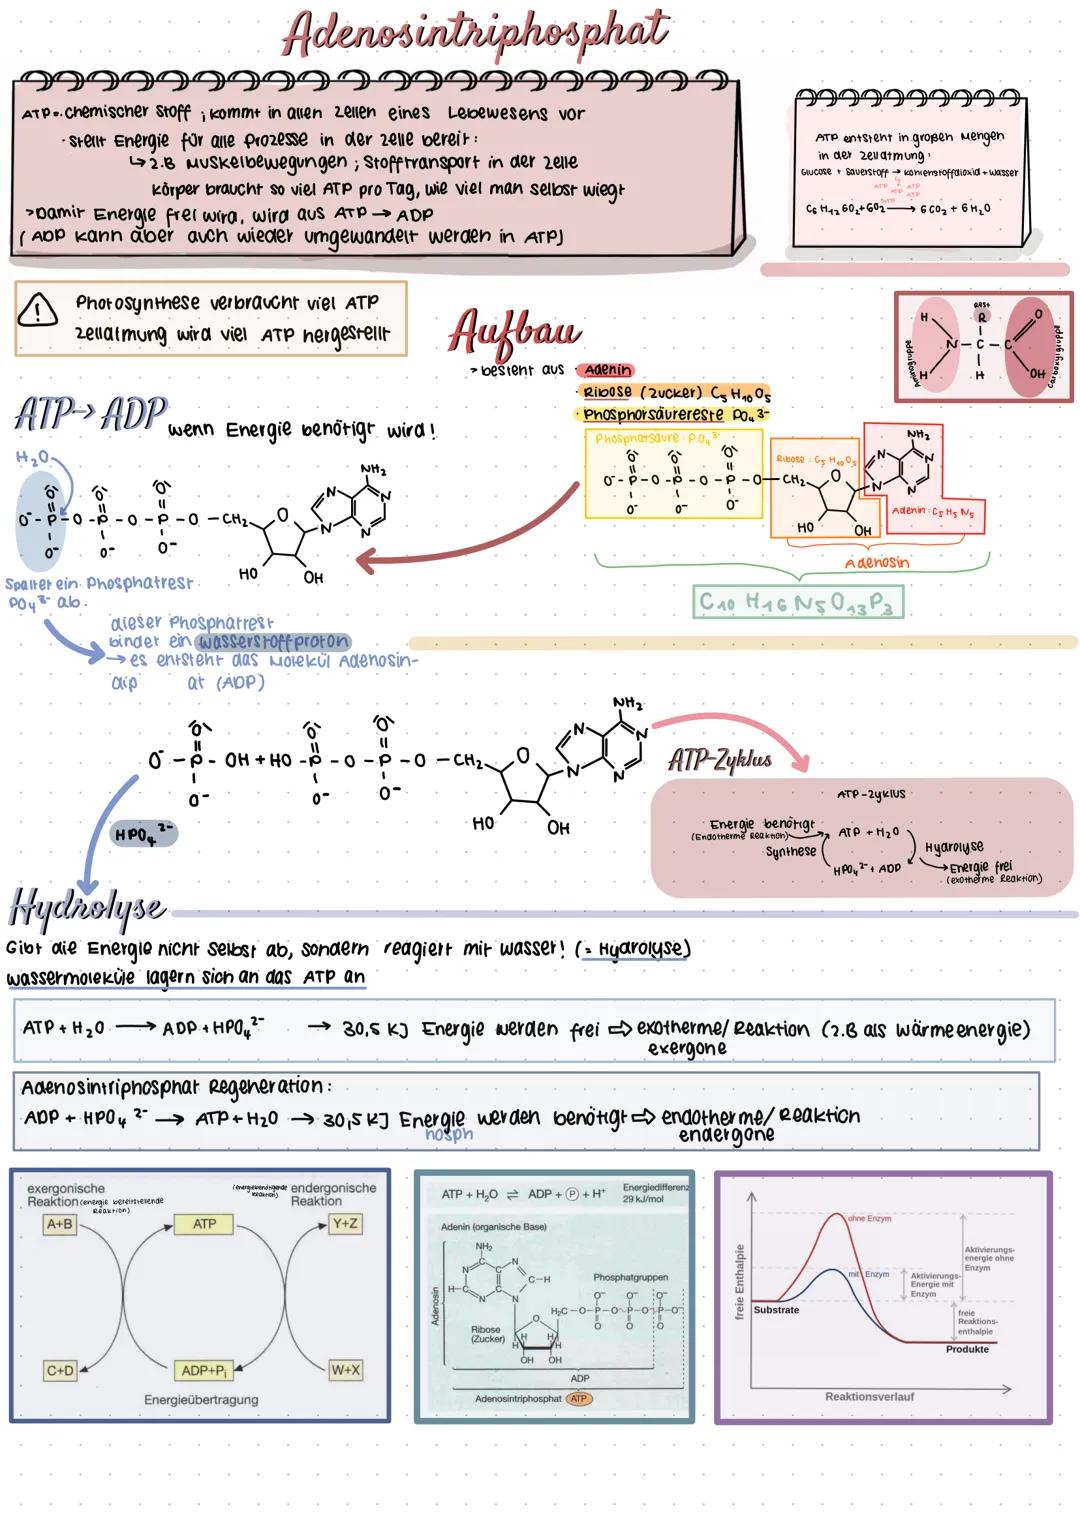 Adenosintriphosphat
ATP = Chemischer Stoff ; kommt in allen Zellen eines Lebewesens vor
· stellt Energie für alle Prozesse in der Zelle bereit:
↳ z.B Muskelbewegungen ; Stofftransport in der Zelle
Körper braucht so viel ATP pro Tag, wie viel man selbst wiegt
> Damit Energie frei wird, wird aus ATP → ADP
( ADP kann aber auch wieder umgewandelt werden in ATP)
ATP entsteht in großen Mengen
in der Zellatmung:
Glucose + Sauerstoff → Kohlenstoffdioxid + Wasser
ATP ATP
ATP ATP
ATP
C6 H12 6O2 + 6O2 → 6 CO2 + 6 H2O
! Photosynthese verbraucht viel ATP
Zellatmung wird viel ATP hergestellt
Aufbau
> besteht aus · Adenin
· Ribose (Zucker) C5 H10 O5
· Phosphorsäurereste PO4 3-
Aminogruppe
Rest
H R O
N - C - C
H H OH
Carboxylgruppe
ATP→ ADP
wenn Energie benötigt wird!
H2O
NH2
N N
N N
|O| |O| |O|
O⁻ - P - O - P - O - P - O - CH2 O
O⁻ O⁻ O⁻
HO OH
Phosphatsäure: PO4 3-
Ribose : C5 H10 O5
NH2
N N
N N
|O| |O| |O|
O⁻ - P - O - P - O - P - O - CH2 O
O⁻ O⁻ O⁻
HO OH
Adenin : C5 H5 N5
Adenosin
C10 H16 N5 O13 P3
Spaltet ein Phosphatrest
PO4 3- ab.
dieser Phosphatrest
bindet ein Wasserstoffproton
→ es entsteht das Molekül Adenosin-
dip at (ADP)
NH2
N N
N N
|O| |O| |O|
O⁻ - P - OH + HO - P - O - P - O - CH2 O
O⁻ O⁻ O⁻
HO OH
HPO4 2-
ATP-Zyklus
ATP-Zyklus
Energie benötigt
(Endotherme Reaktion)
Synthese
ATP + H2O
HPO4 2- + ADP
Hydrolyse
→ Energie frei
(exotherme Reaktion)
Hydrolyse
Gibt die Energie nicht selbst ab, sondern reagiert mit Wasser! (= Hydrolyse)
Wassermoleküle lagern sich an das ATP an
ATP + H2O → ADP + HPO4 2- → 30,5 KJ Energie werden frei ⇒ exotherme/ Reaktion (z.B als Wärmeenergie)
exergone
Adenosintriphosphat Regeneration:
ADP + HPO4 2- → ATP + H2O → 30,5 KJ Energie werden benötigt ⇒ endotherme/ Reaktion
nosph
endergone
exergonische
Reaktion (energie bereitstellende
Reaktion)
(energiebenötigende
Reaktion)
endergonische
Reaktion
A+B ATP Y+Z
C+D ADP+Pi W+X
Energieübertragung
ATP + H2O ⇌ ADP + P + H+
Energiedifferenz
29 kJ/mol
Adenin (organische Base)
NH2
N C C N
H-C C C-H
N N
Adenosin
Phosphatgruppen
O⁻ O⁻ O⁻
H2C-O-P-O-P-O-P-O⁻
O O O
Ribose
(Zucker)
O
H H H H
OH OH
ADP
Adenosintriphosphat ATP
freie Enthalpie
ohne Enzym
mit Enzym
Aktivierungs-
Energie mit
Enzym
Aktivierungs-
energie ohne
Enzym
Substrate
freie
Reaktions-
enthalpie
Produkte
Reaktionsverlauf